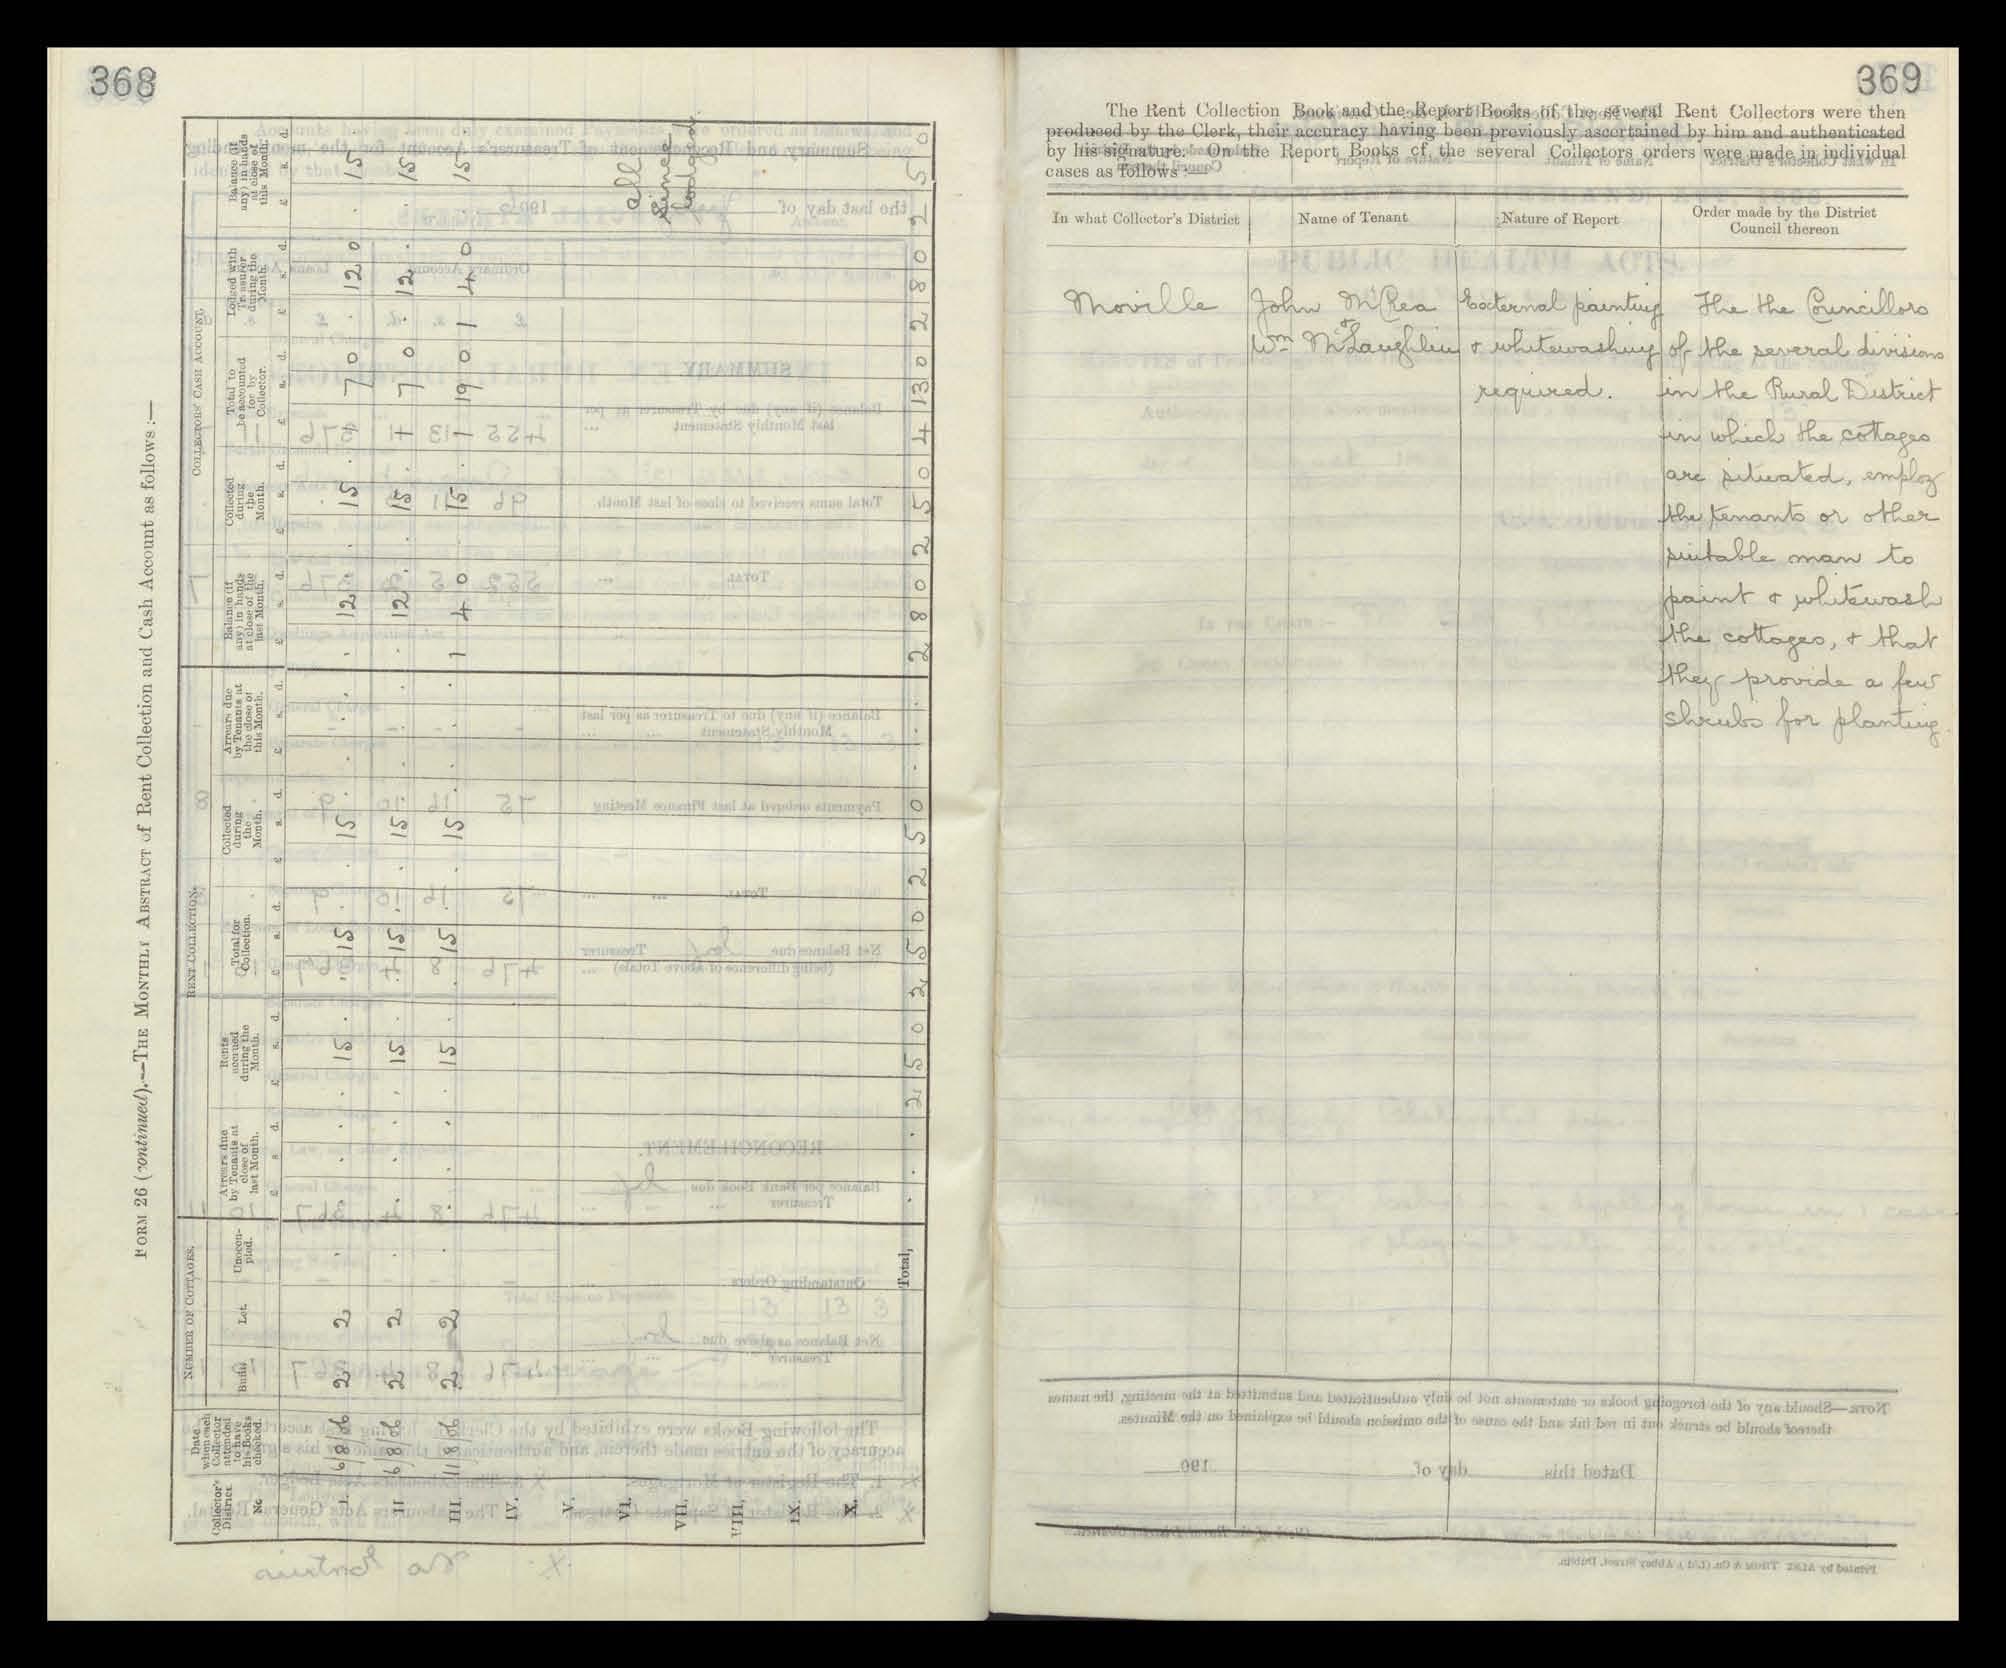 368
FORM 26 (continued).—THE MONTHLY ABSTRACT of Rent Collection and Cash Account as follows :—
Collector's District No
Date when each Collector attended to have his Books checked.
NUMBER OF COTTAGES.
Built
Let.
Unoccupied.
RENT COLLECTION.
Arrears due by Tenants at close of last Month.
Rents accrued during the Month.
Total for Collection.
Collected during the Month.
Arrears due by Tenants at the close of this Month.
COLLECTORS' CASH ACCOUNT.
Balance (if any) in hands at close of the last Month.
Collected during the Month.
Total to be accounted for by Collector.
Lodged with Treasurer during the Month.
Balance (if any) in hands at close of this Month.
£ s. d. £ s. d. £ s. d. £ s. d. £ s. d. £ s. d. £ s. d. £ s. d. £ s. d. £ s. d.
I. 6/8/06 2 2 . . . . . 15 . . 15 . . 15 . . . . . 12 . . 15 . 1 7 0 . 12 0 . 15
II 6/8/06 2 2 . . . . . 15 . . 15 . . 15 . . . . . 12 . . 15 . 1 7 0 . 12 . . 15
III. 11/8/06 2 2 . . . . . 15 . . 15 . . 15 . . . . 1 4 0 . 15 . 1 19 0 1 4 0 . 15
IV.
V.
VI. all
VII. since
lodged.
VIII.
IX.
X.
Total, . . . 2 5 0 2 5 0 2 5 0 . . . 2 8 0 2 5 0 4 13 0 2 8 0 2 5 0
369
The Rent Collection Book and the Report Books of the several Rent Collectors were then
produced by the Clerk, their accuracy having been previously ascertained by him and authenticated
by his signature. On the Report Books of the several Collectors orders were made in individual
cases as follows :—
In what Collector's District
Name of Tenant
Nature of Report
Order made by the District
Council thereon
Moville
John McCrea
&
Wm McLaughlin
External painting
& whitewashing
required.
The the Councillors
of the several divisions
in the Rural District
in which the cottages
are situated, employ
the tenants or other
suitable man to
paint & whitewash
the cottages, & that
they provide a few
shrubs for planting.